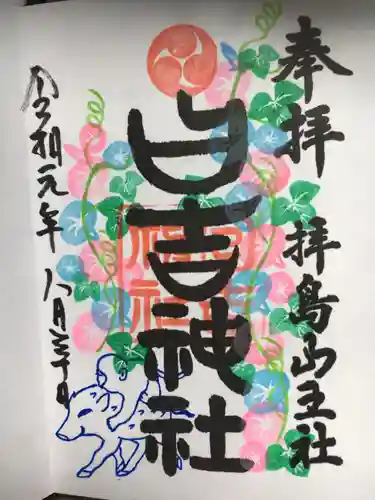 奉拝 拝島山王社
日吉神社
令和元年八月三十日